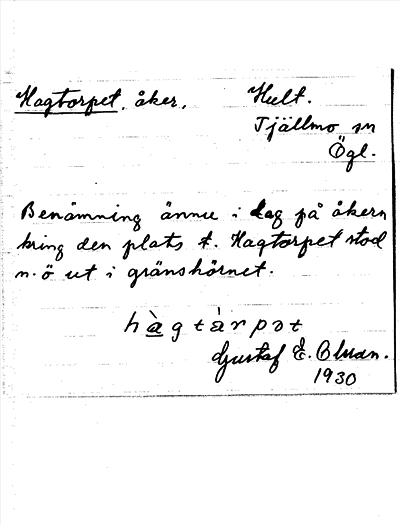 Hagtorpet, åker. Hult.
Tjällmo sn
Ögl.
Benämning ännu i dag på åkern
kring den plats t. Hagtorpet stod
n.ö ut i gränshörnet.
hàgtàrpət
Gustaf E. Olsson.
1930